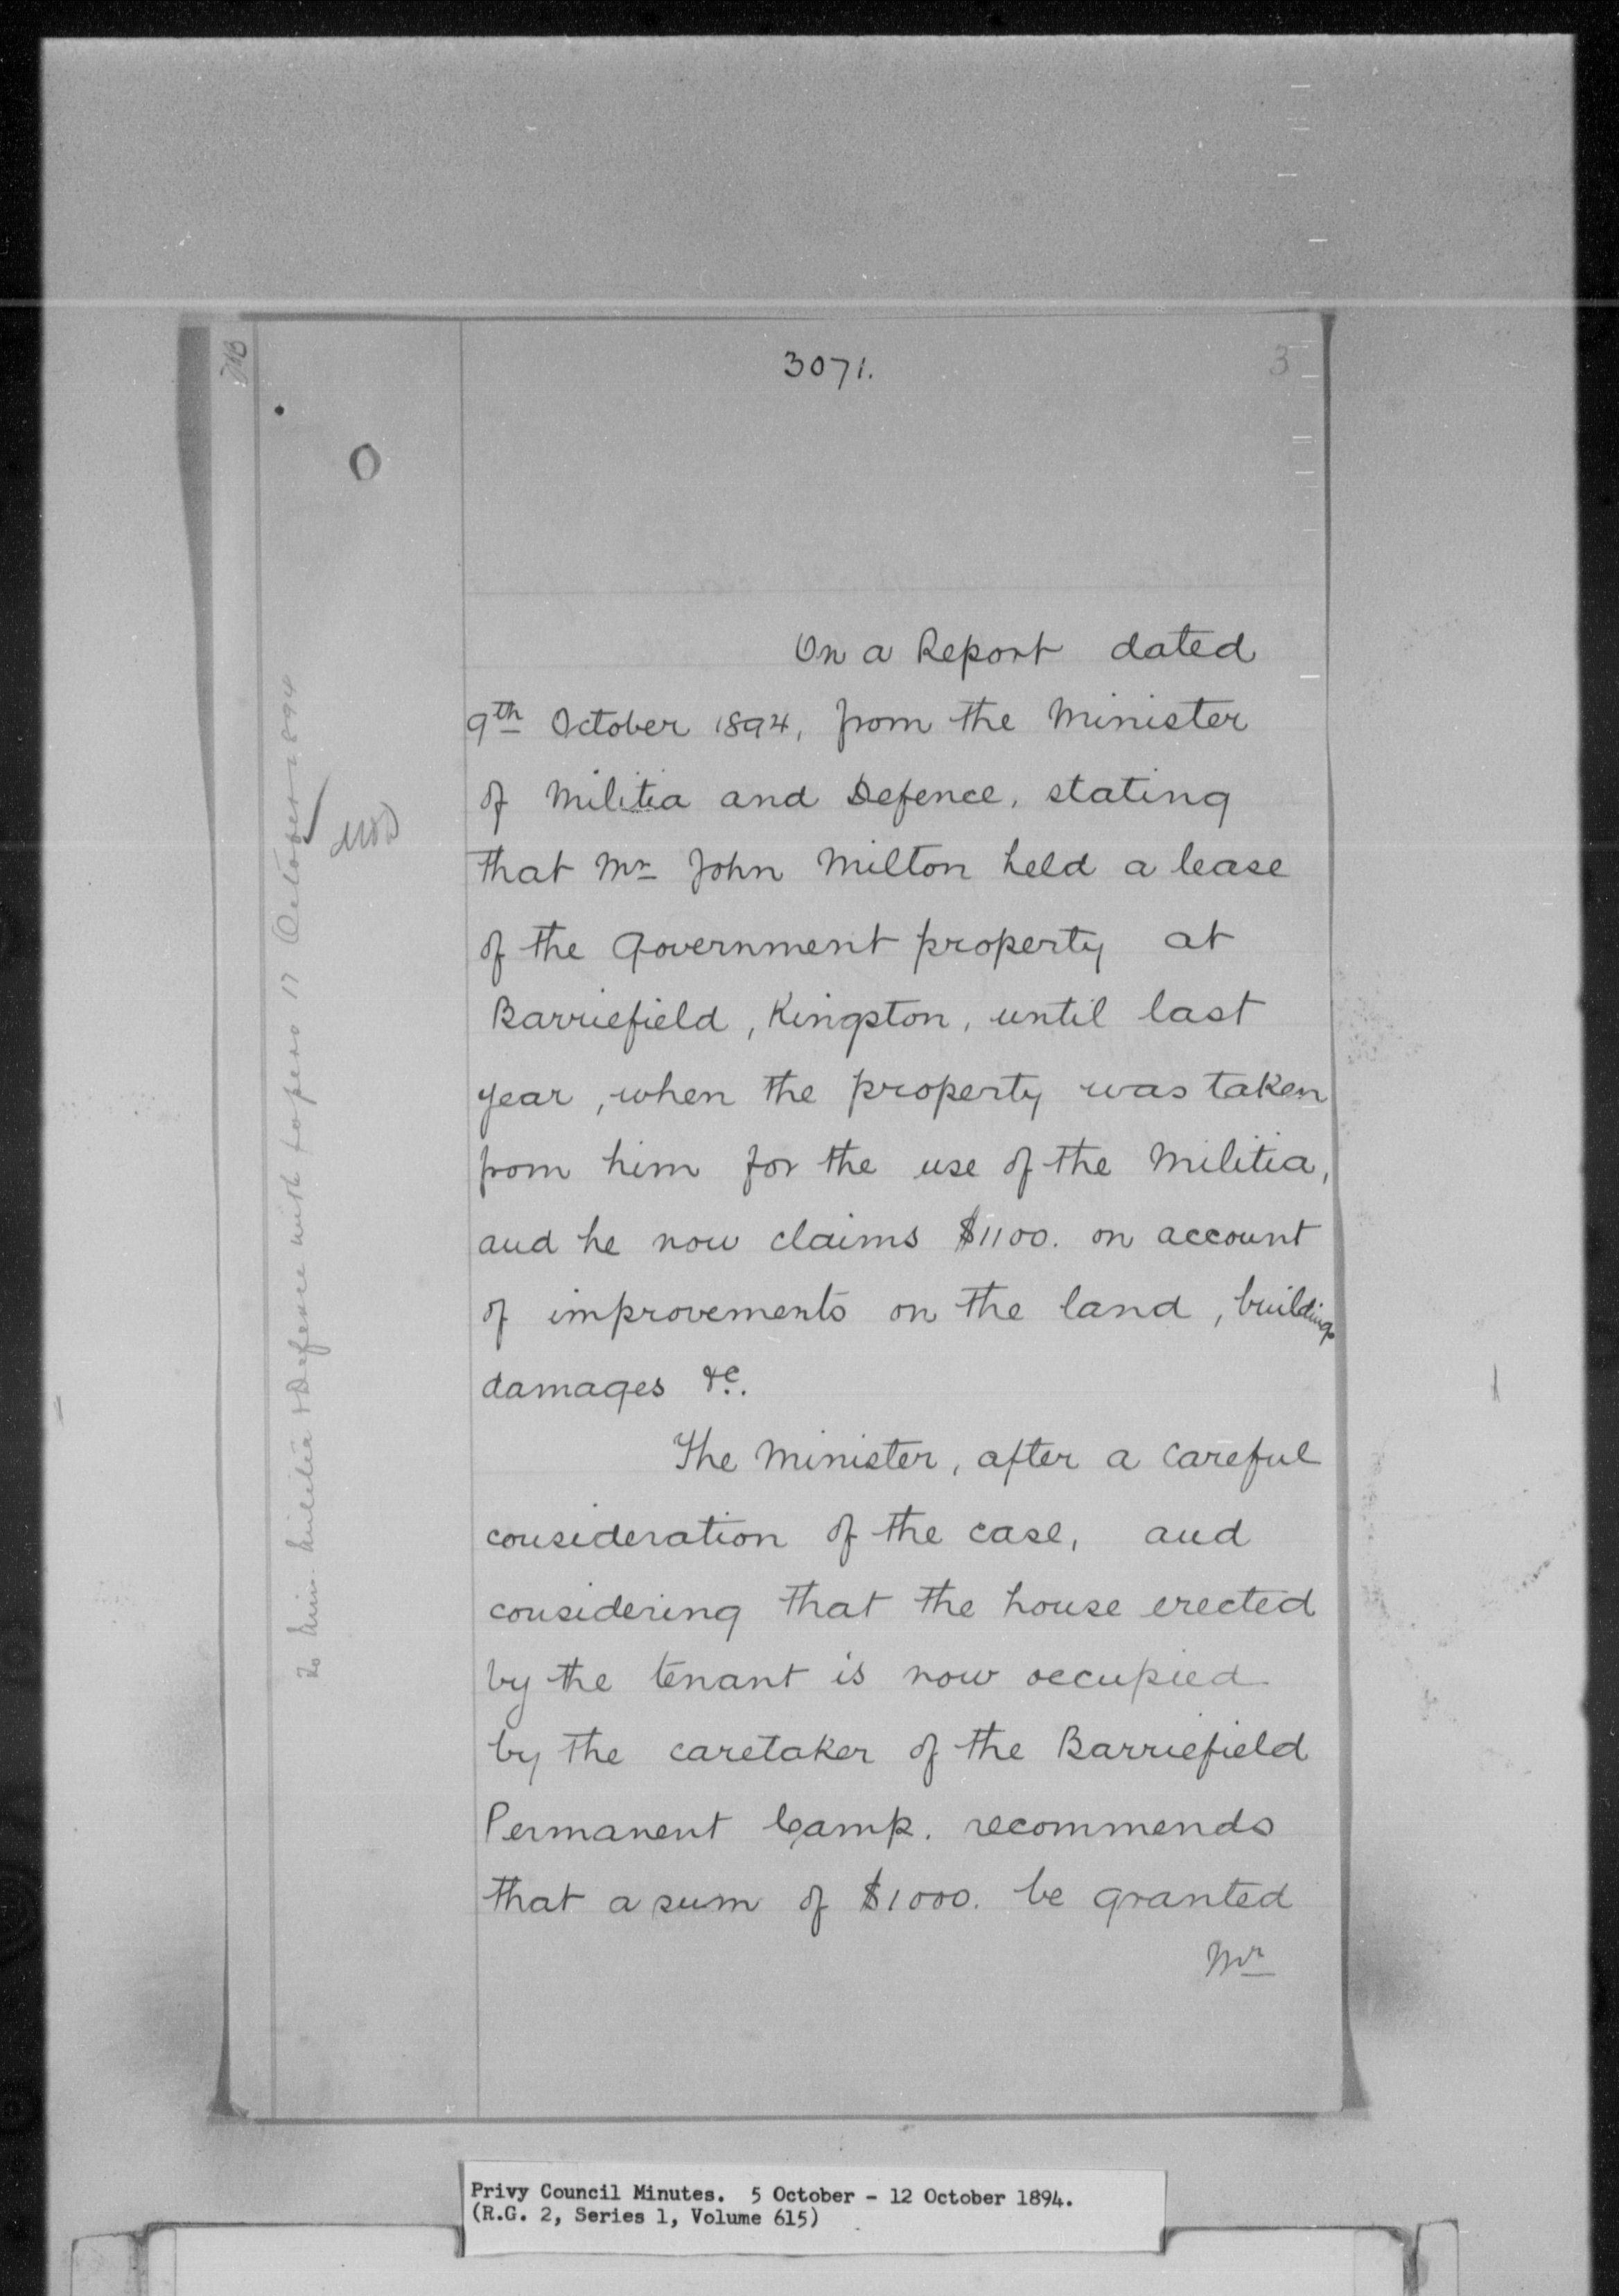 3071.
3
On a Report dated
9th October 1894, from the Minister
of Militia and Defence, stating
that Mr John Milton held a lease
of the Government property at
Barriefield, Kingston, until last
year, when the property was taken
from him for the use of the Militia,
and he now claims $1100. on account
of improvements on the land, buildings
damages &c.
The Minister, after a careful
consideration of the case, and
considering that the house erected
by the tenant is now occupied
by the caretaker of the Barriefield
Permanent Camp. recommends
that a sum of $1000. be granted
Mr
To Min. Militia & Defence with papers 17 October 1894
Privy Council Minutes. 5 October - 12 October 1894.
(R.G. 2, Series 1, Volume 615)